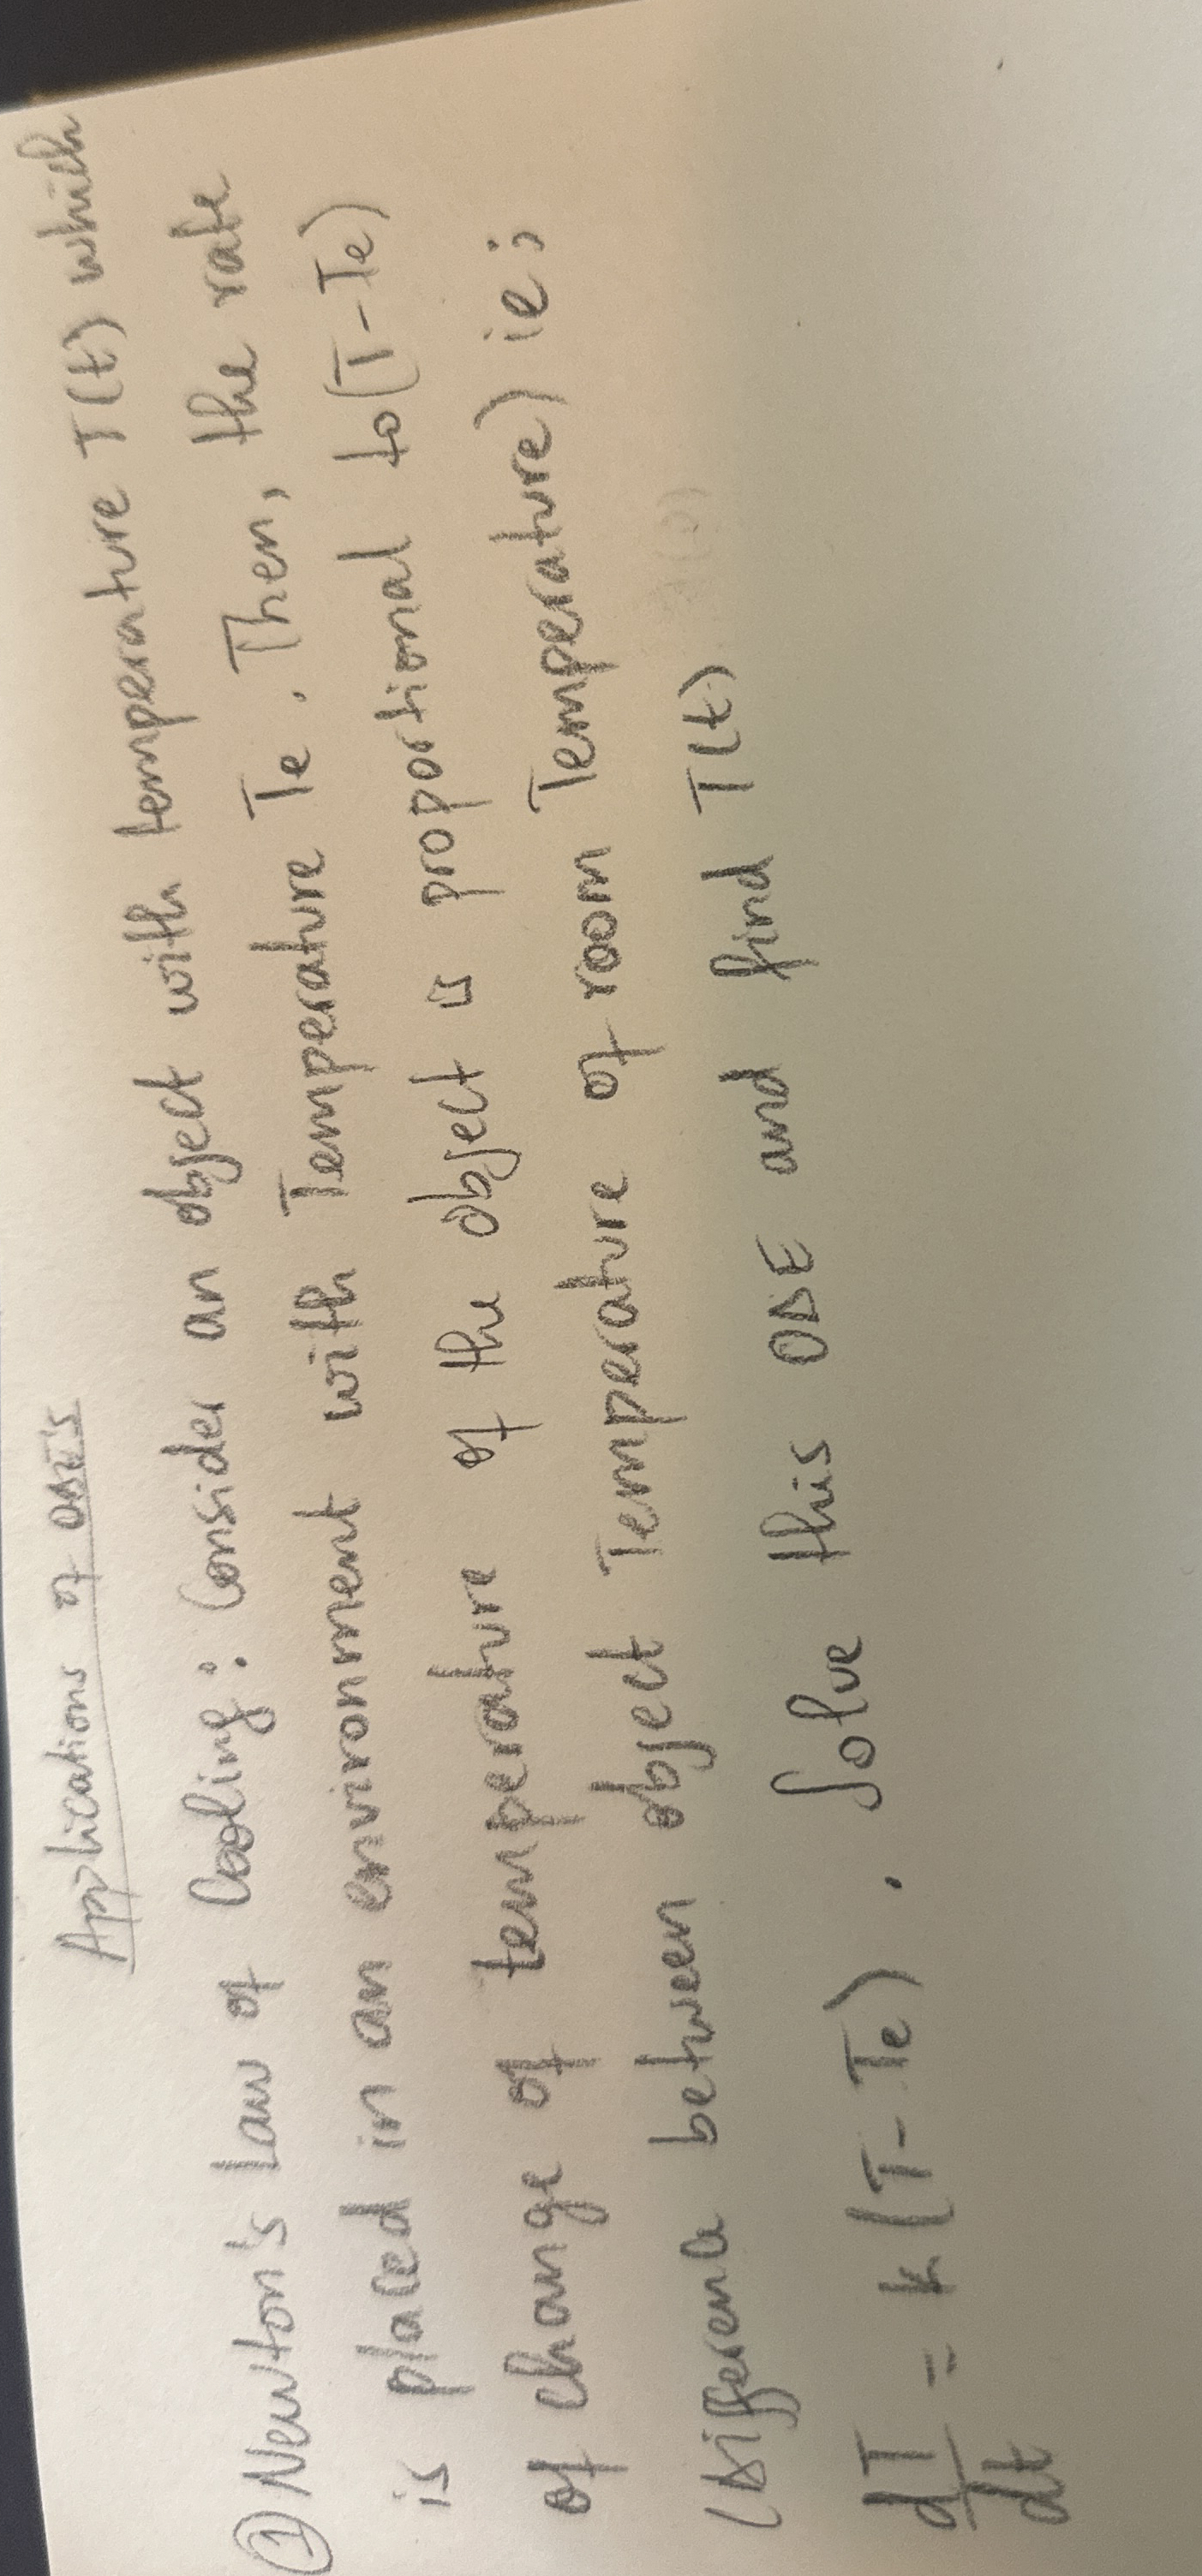 Applications of ODE's
① Newton's Law of Cooling: Consider an object with temperature T(t) which
is placed in an environment with Temperature Te. Then, the rate
of change of temperature of the object is proportional to (T-Te)
(Difference between object Temperature of room Temperature) ie;
dT/dt = k(T-Te). Solve this ODE and find T(t)